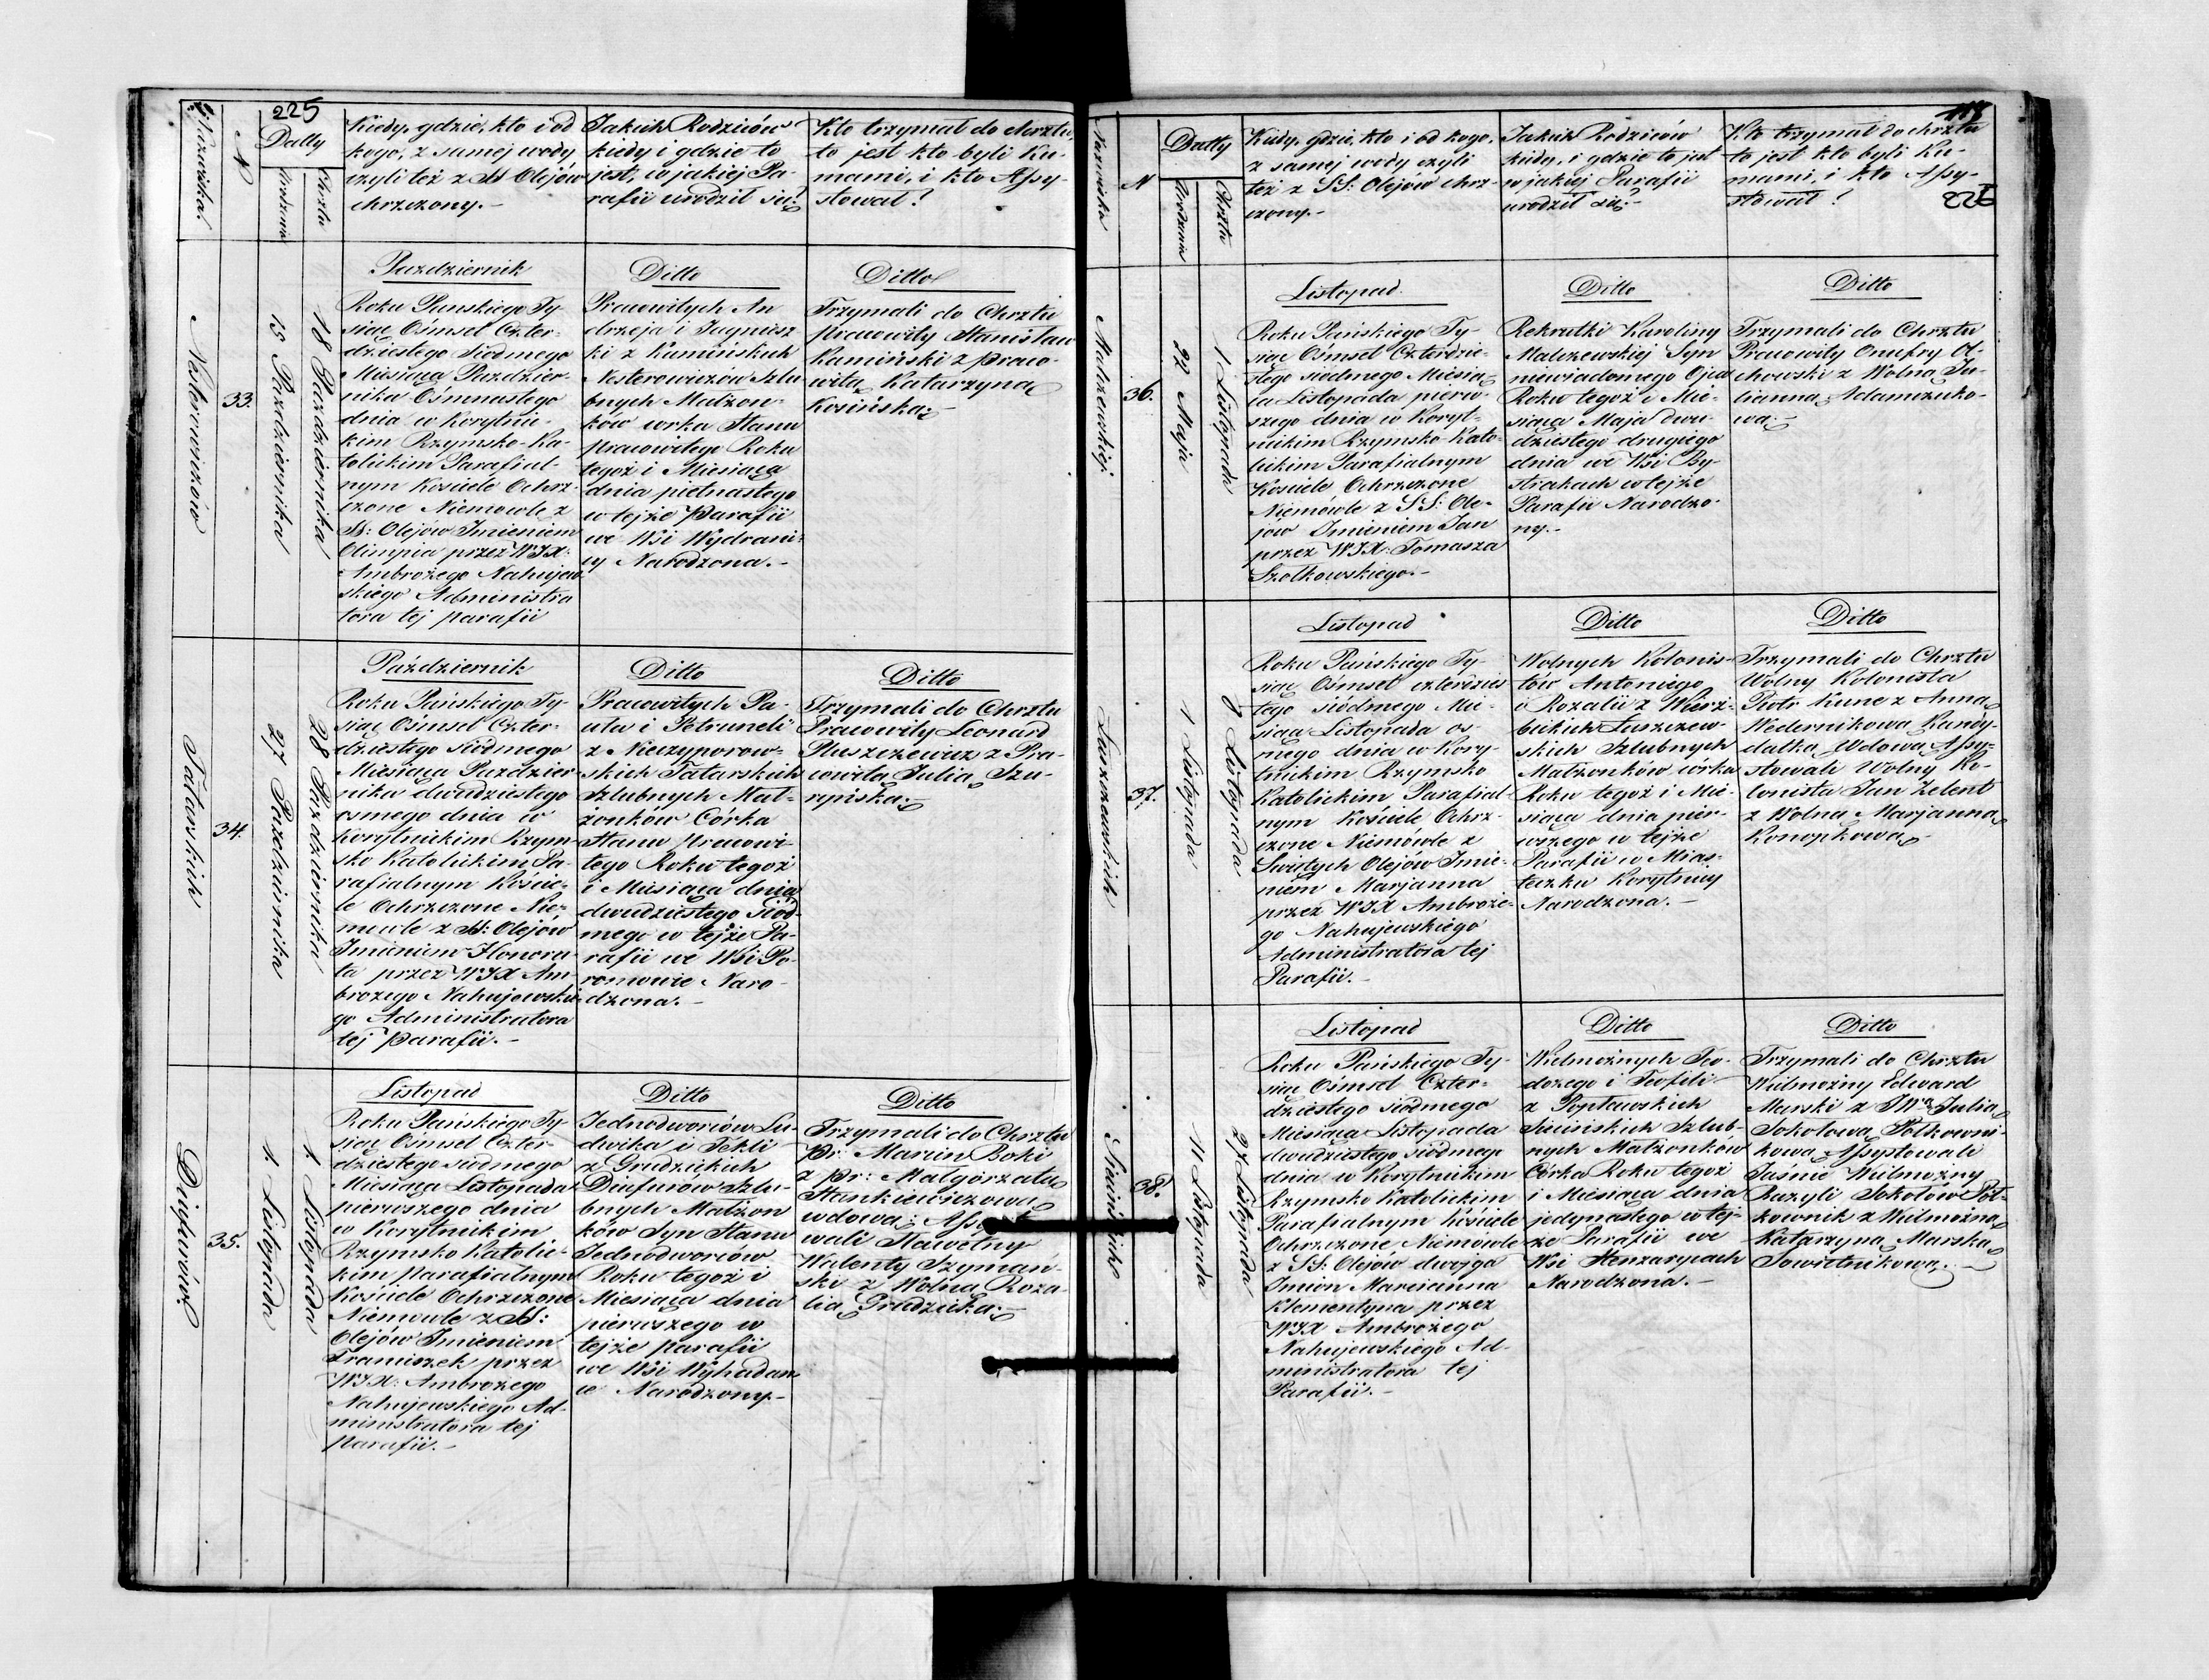 225
Nazwiska
N
Datty
Urodzenia
Chrztu
Kiedy, gdzie, kto i od
kogo, z samej wody
czyli też z SS Olejów
chrzczony.-
Jakich Rodziców
kiedy i gdzie to
jest, w jakiej Pa-
rafii urodził się?
Kto trzymał do chrztu,
to jest kto byli Ku-
mami, i kto Assy-
stował?
Nesterowiczów
33.
15 Października
18 Października
Pazdziernik
Roku Panskiego Ty-
siąc Ośmset Czter-
dziestego Siodmego
Miesiąca Pazdzier-
nika Osmnastego
dnia w Korytnic-
kim Rzymsko-Ka-
tolickim Parafial-
nym Kosciele Ochrz-
czone Niemowle z
SS: Olejów Imieniem
Olimpia przez WJX:
Ambrożego Nahujew-
skiego Administra
tora tej parafii
Ditto
Pracowitych An
drzeja i Jagnisz
ki z Kamińskich
Nesterowiczów Szlu
bnych Małżon-
ków corka Stanu
pracowitego Roku
tegoż i Miesiąca
dnia piętnastego
w tejże parafii
we Wsi Wydrani-
cy Narodzona.-
Ditto
Trzymali do Chrztu
pracowity Stanisław
Kamiński z praco-
witą Katarzyną
Kosińską.-
Tatarskich
34.
27 Października
28 Października
Październik
Roku Pańskiego Ty-
siąc Ośmset Czter-
dziestego siodmego
Miesiąca Pazdzier
nika dwudziestego
osmego dnia w
Korytnickim Rzym-
sko Katolickim Pa-
rafialnym Koście-
le Ochrzczone Nie-
mowle z SS: Olejów
Imieniem Honora-
ta przez WJX Am-
brożego Nahujewskie-
go Administratora
tej Parafii.-
Ditto
Pracowitych Pa-
wła i Petruneli
z Nieczyporow-
skich Tatarskich
Szlubnych Mał-
żonków Córka
Stanu pracowi
tego Roku tegoż
i Miesiąca dnia
dwudziestego siod-
mego w tejże Pa-
rafii we Wsi Po-
romowie Naro-
dzona.-
Ditto
Trzymali do Chrztu
Pracowity Leonard
Pluszczewicz z Pra-
cowitą Julią Szu-
rpińską.-
Dinfurów
35.
1. Listopada
1. Listopada
Listopad
Roku Pańskiego Ty-
siąc Ośmset Czter-
dziestego siodmego
Miesiąca Listopada
pierwszego dnia
w Korytnickim
Rzymsko Katolic-
kim parafialnym
Kościele Ochrzczone
Niemowle z SS:
Olejów Imieniem
Franciszek przez
WJX: Ambrożego
Nahujewskiego Ad-
ministratora tej
parafii.-
Ditto
Jednodworców Lu-
dwika i Tekli
z Grudzickich
Dinfurów Szlu-
bnych Małżon
ków Syn Stanu
Jednodworców
Roku tegoż i
Miesiąca dnia
pierwszego w
tejże parafii
we Wsi
Narodzony.-
Ditto
Trzymali do Chrztu
Pr: Marcin Boki
z Pr: Małgorzatą
Stankiewiczową
wdową;
wali Sławetny
Walenty Szymań-
ski z Wolną Roza-
lią Grudzicką.-
118
226
Nazwiska
N
Datty
Urodzenia
Chrztu
Kiedy, gdzie, kto i od kogo,
z samej wody czyli
też z SS: Olejów chrz-
czony.-
Jakich Rodziców
kiedy, i gdzie to jest
w jakiej Parafii
urodził się?-
Kto trzymał do chrztu
to jest kto byli Ku-
mami, i kto Assy-
stował?
Malczewskiej
36.
22 Maja
1 Listopada
Listopad.
Roku Pańskiego Ty-
siąc Ośmset Czterdzie-
stego siodmego Miesią-
ca Listopada pierw-
szego dnia w Koryt-
nickim Rzymsko Kato-
lickim Parafialnym
Kościele Ochrzczone
Niemówle z SS: Ole-
jów Imieniem Jan
przez WJX: Tomasza
Szołkowskiego.-
Ditto
Rekrutki Karoliny
Malczewskiej Syn
niewiadomego Ojca
Roku tegoż i Mie-
siąca Maja dwu-
dziestego drugiego
dnia we Wsi By-
strakach w tejże
Parafii Narodzo-
ny.-
Ditto
Trzymali do Chrztu
Pracowity Onufry Ol-
chowski z Wolną Ju-
lianną Adamczuko-
wą.-
Łuszczewskich
37.
1 Listopada
8 Listopada
Listopad
Roku Pańskiego Ty-
siąc Ośmset czterdzies
tego siódmego Mie-
siąca Listopada os-
mego dnia w Kory-
tnickim Rzymsko
Katolickim Parafial-
nym Kościele Ochrz-
czone Niemówle z
Swiętych Olejów Imie-
niem Marjanna
przez WJX Ambroże-
go Nahujewskiego
Administratora tej
Parafii.-
Ditto
Wolnych Kolonis-
tów Antoniego
i Rozalii z Wierz-
bickich Łuszczew-
skich Szlubnych
Małżonków córka
Roku tegoż i Mie-
siąca dnia pier-
wszego w tejże
Parafii w Mias-
teczku Korytnicy
Narodzona.-
Ditto
Trzymali do Chrztu
Wolny Kolonista
Piotr Kunc z Anną
Wedernikową Kandy-
datką Wdową Assy-
stowali Wolny Ko-
lonista Jan Zelent
z Wolną Marjanną
Konopkową.-
38.
11 Listopada
27 Listopada
Listopad
Roku Pańskiego Ty-
siąc Ośmset Czter-
dziestego siódmego
Miesiąca Listopada
dwudziestego siódmego
dnia w Korytnickim
Rzymsko Katolickim
Parafialnym Kościele
Ochrzczone Niemówle
z SS: Olejów dwojga
Imion Marcianna
Klementyna przez
WJX Ambrożego
Nahujewskiego Ad-
ministratora tej
Parafii.-
Ditto
Wielmożnych Teo-
dozego i Teofili
z Popławskich
Szlub-
nych Małżonków
Córka Roku tegoż
i Miesiąca dnia
jedynastego w tej-
że Parafii we
Wsi
Narodzona.-
Ditto
Trzymali do Chrztu
Wielmożny Edward
Marski z JWą Julią
Sokołową Półkowni-
kową Assystowali
Jaśnie Wielmożny
Bazyli Sokołow Poł-
kownik z Wielmożną
Katarzyną Marską
Sowietnikową.-